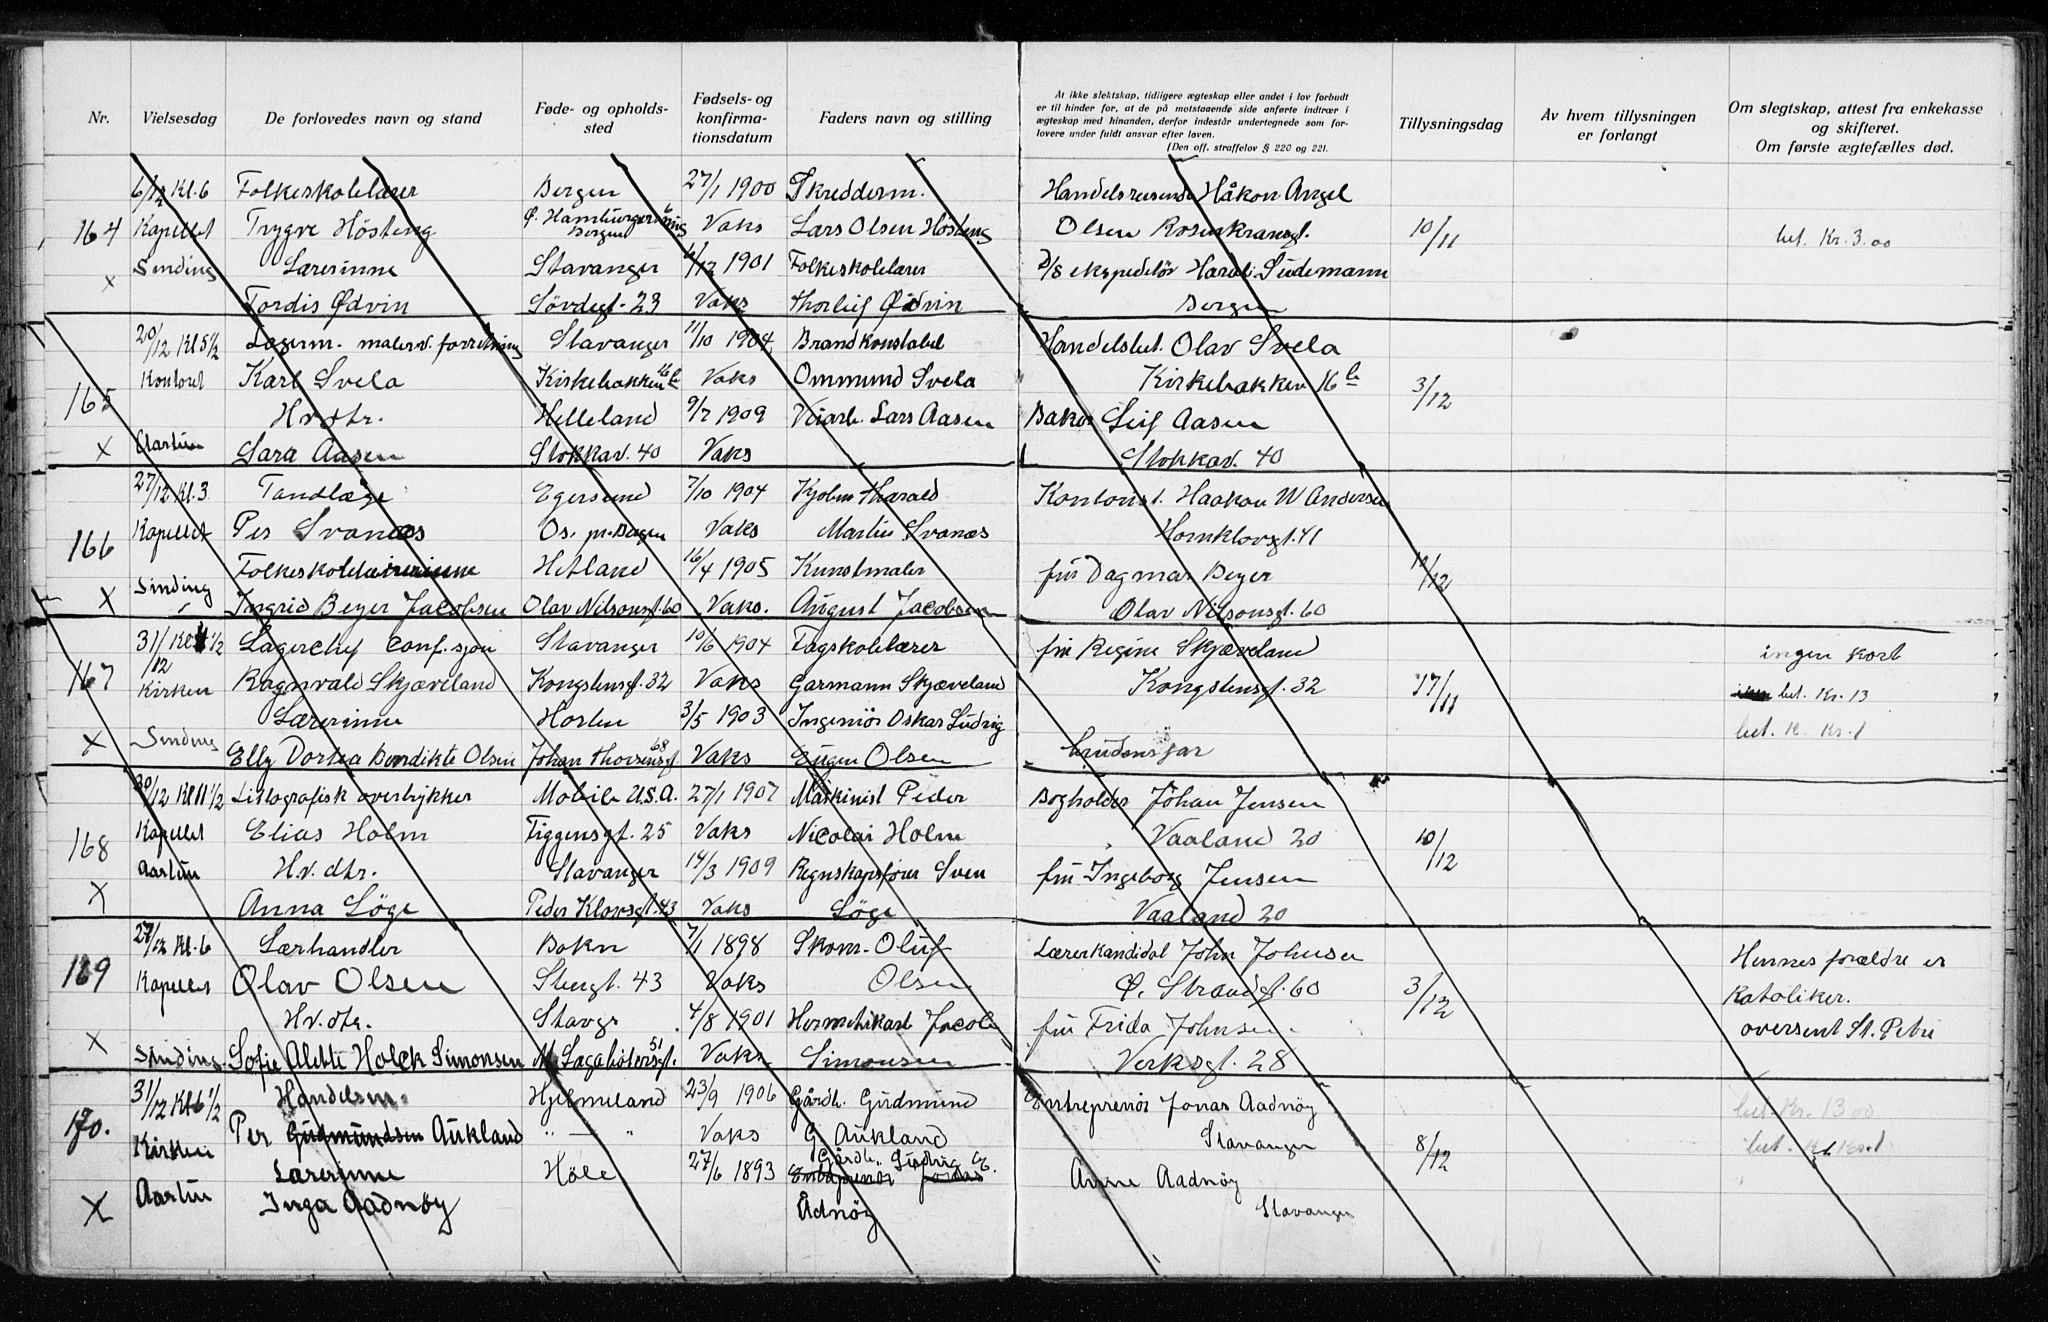 Nr.
Vielsesdag
De forlovedes navn og stand
Føde- og opholds-
sted
Fødsels- og
konfirma-
tionsdatum
Faders navn og stilling
At ikke slektskap, tidligere ægteskap eller andet i lov forbudt
er til hinder for, at de på motstaaende side anførte indtrær i
ægteskap med hinanden, derfor indestår undertegnede som for-
lovere under fuldt ansvar efter loven.
(Den off. straffelov § 220 og 221.
Tillysningsdag
Av hvem tillysningen
er forlangt
Om slegtskap, attest fra enkekasse
og skifteret.
Om første ægtefælles død.
6/12 Kl. 6 Folkeskolelærer Bergen 27/1 1900 Skredderm. Handelsreisende Håkon Angel
164 Kapellet Trygve Hösteng Ø. Hamburgersmug 6 Bergen Vaks Lars Olsen Hösteng Olsen Rosenkransgt. 10/11 bet. Kr. 3.00
Sinding Lærerinne Stavanger 1901 Folkeskolelærer ekspeditör Haral. Sudemann
x Tordis Ødvin Lövdegt. 23 Vaks Thorleif Ødvin Bergen
20/12 Kl 5 1/2 Lagerm. malerv. forretning Stavanger 11/10 1904 Brandkonstabel Handelsbet. Olav Svela
165 Kontoret Karl Svela Kirkebakken 16 b Vaks Ommund Svela Kirkebakken 16 b 3/12
H.v. dtr. Helleland 9/7 1909 Veiarb. Lars Aasen Baker Leif Aasen
x Aartun Sara Aasen Stokkav. 40 Vaks Stokkav. 40
27/12 Kl. 3 Tandlæge Egersund 7/10 1904 Kjøbm Harald Kontorist. Haakon W Andersen
166 Kapellet Per Svanæs Os. pr. Bergen Vaks Martin Svanæs Hornklovgt. 41
Folkeskolelærerinne Hetland 16/4 1905 Kunstmaler fru Dagmar Beyer 12/12
x Sinding Ingrid Beyer Jacobsen Olav Nilsonsgt. 60 Vaks. August Jacobsen Olav Nilsonsgt. 60
31/12 Kl 1/2 Lagerchef Conf.sjon Stavanger 10/6 1904 Fagskolelærer fru Regine Skjæveland ingen kort
167 Kirken Ragnvald Skjæveland Kongstensgt. 32 Vaks Garmann Skjæveland Kongstensgt. 32 17/11 bet. Kr. 13
Lærerinne Horten 3/5 1903 Ingeniör Oskar Ludvig bet. K. Kr. 1
x Sinding Elly Dortea Bendikte Olsen Johan Thorsensgt 68 Vaks Eugen Olsen
30/12 Kl 11 1/2 Litografisk overtrykker Mobile U.S.A. 27/1 1907 Maskinist Peder Bogholder Johan Jensen
168 Kapellet Elias Holm Tiggensgt. 25 Vaks Nicolai Holm Vaaland 20 10/12
Aartun H.v. dtr. Stavanger 14/3 1909 Regnskapsförer Sven fru Ingeborg Jensen
x Anna Söge Peder Klowsgt. 43 Vaks Söge Vaaland 20
27/12 Kl. 6 Lærhandler Bokn 7/1 1898 Skom. Oluf Lærerkandidat John Johnsen Hennes forældre er
169 Kapellet Olav Olsen Stengt. 43 Vaks Olsen Ø. Strandgt. 60 3/12 Katoliker.
H.v. dtr. Stavgr 4/8 1901 Hermetikarb Jacob fru Frida Johnsen oversent St. Petri
x Sinding Sofie Alette Holck Simonsen M. Sagabötersgt. 51 Vaks Simonsen Verksgt. 28
31/12 Kl 6 1/2 Handelsm. Hjelmeland 23/9 1906 Gårdb. Gudmund Entreprenör Jonas Aadnöy bet. Kr. 13 00
170. Kirken Per Gudmundsen Aukland " — " Vaks G Aukland Stavanger 8/12 bet. Kr. 1
Lærerinne Höle 27/6 1893 Gårdb. Ludvig E. Entreprenör Jonas Anne Aadnöy
x Aartun Inga Aadnöy Ådnöy Stavanger